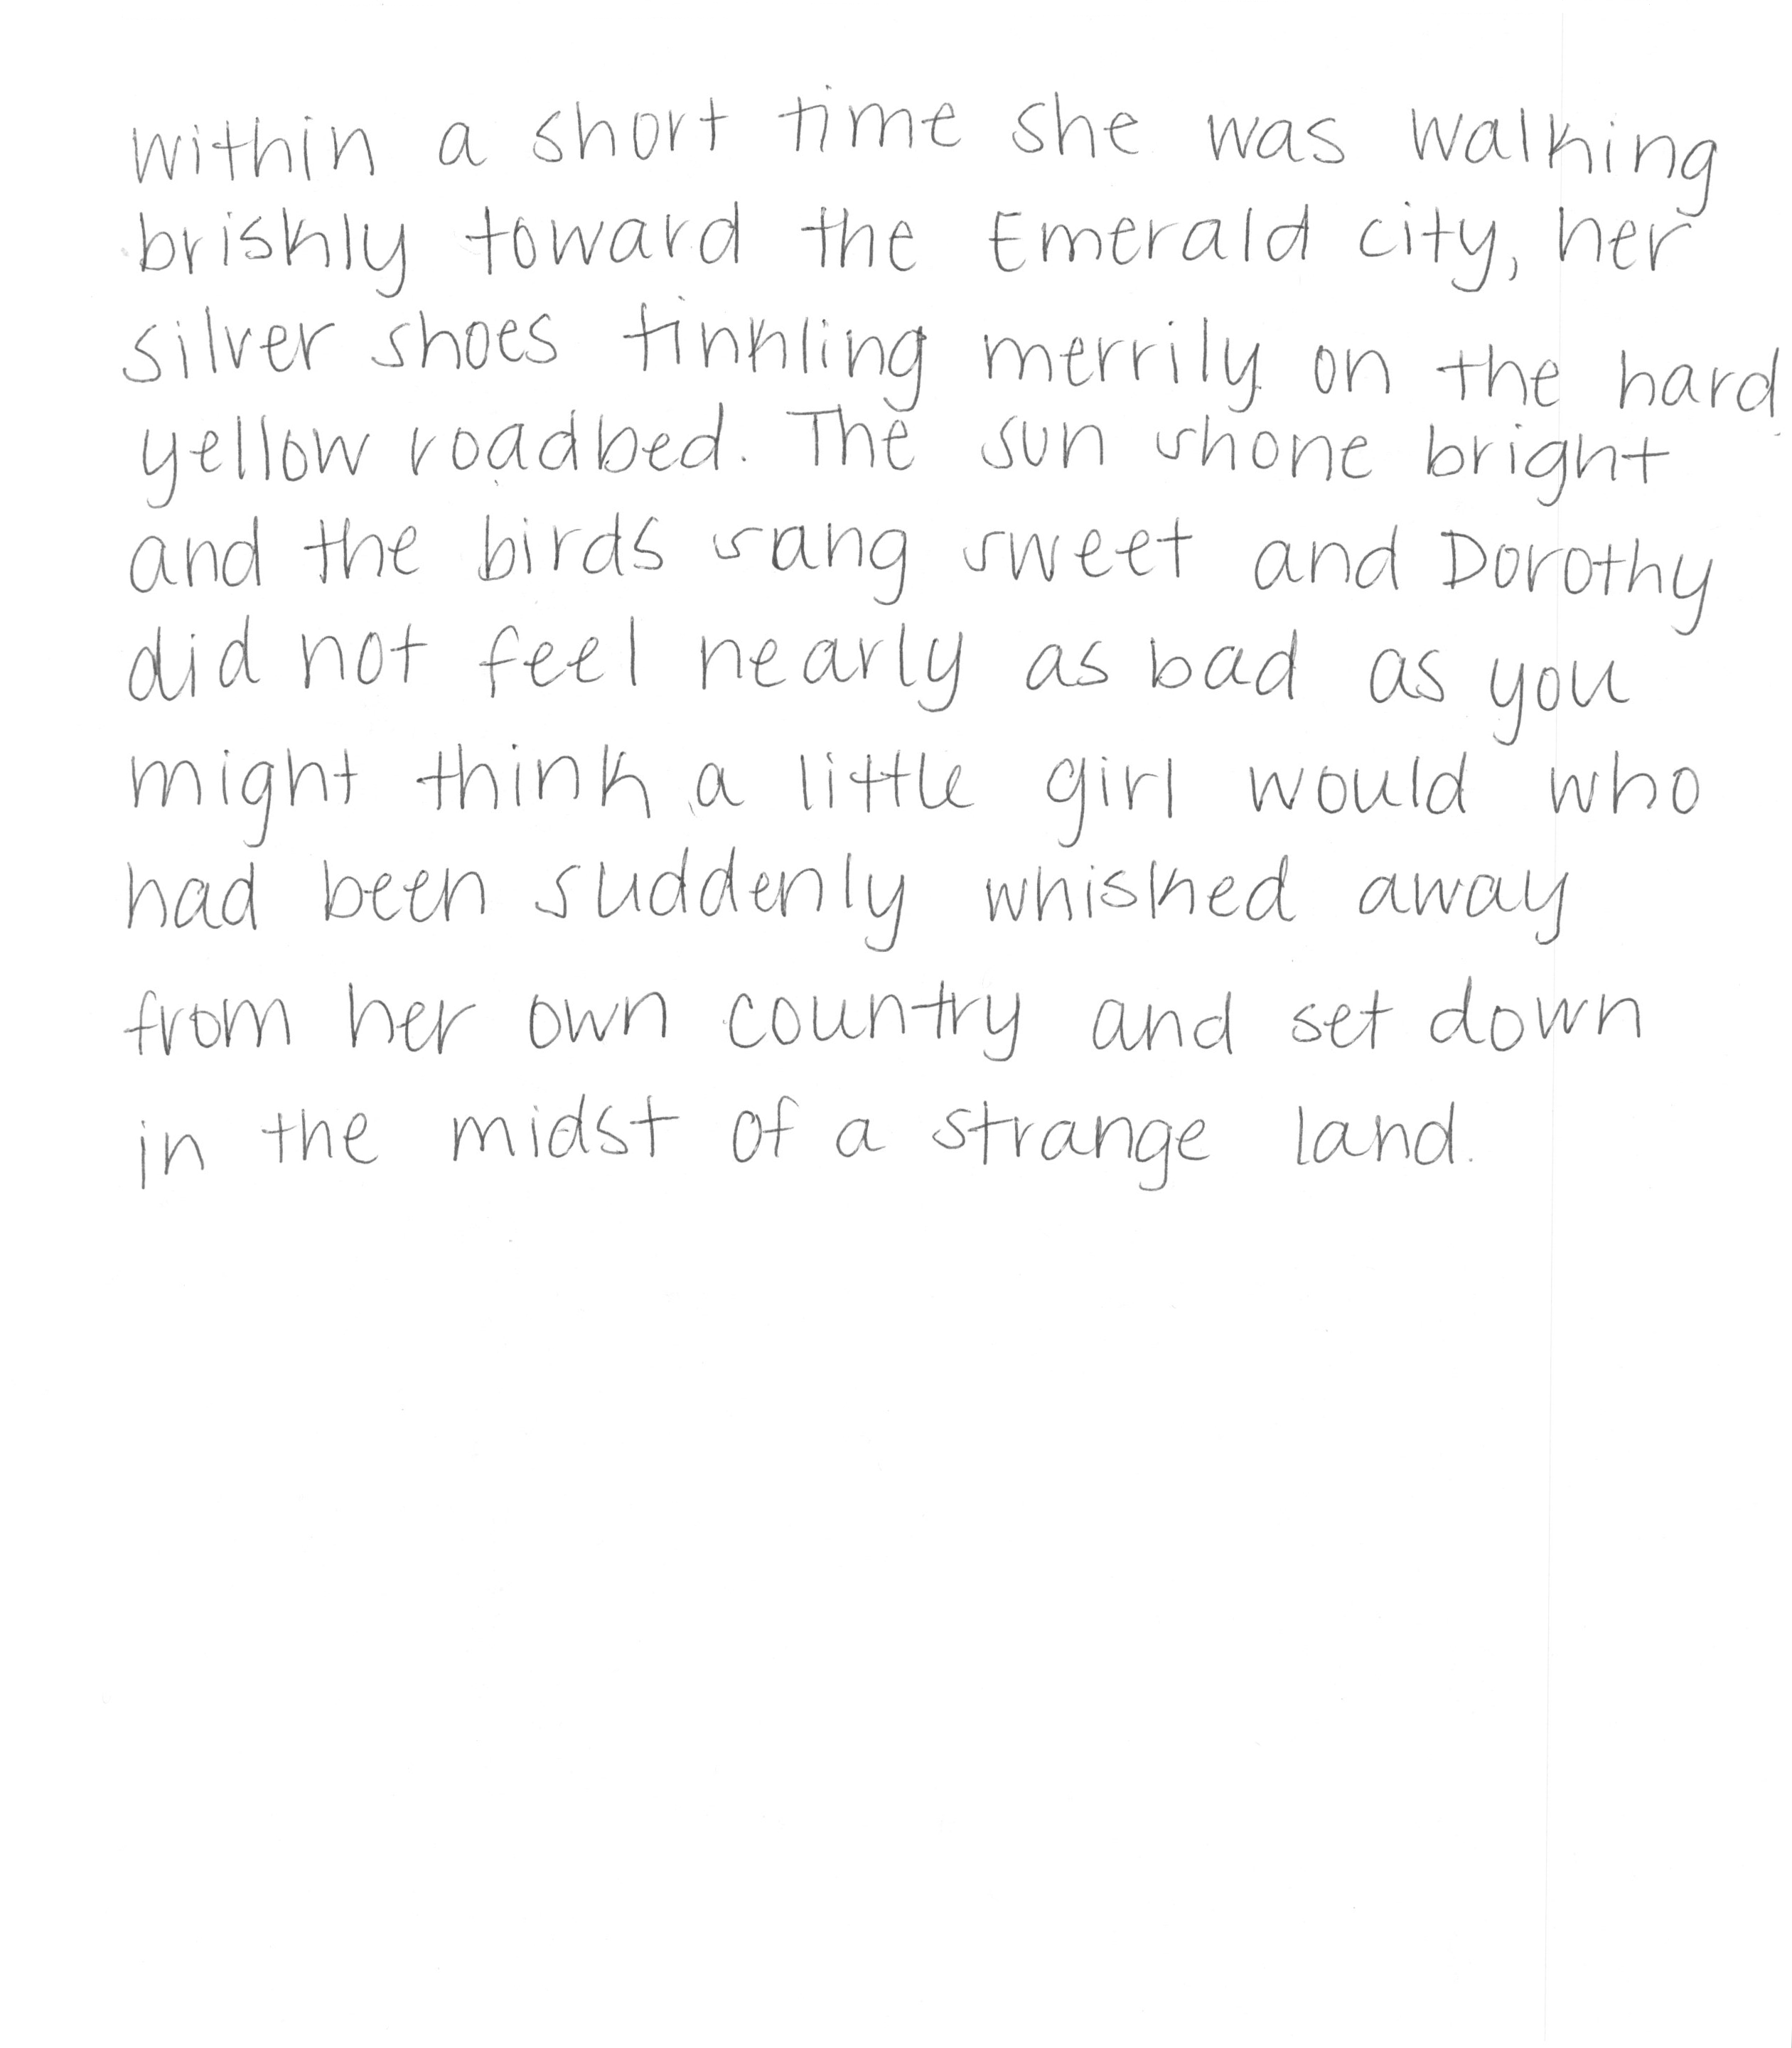 within a short time she was walking
briskly toward the Emerald city, her
silver shoes tinkling merrily on the hard
yellow roadbed. The sun shone bright
and the birds sang sweet and Dorothy
did not feel nearly as bad as you
might think a little girl would who
had been suddenly whisked away
from her own country and set down
in the midst of a strange land.